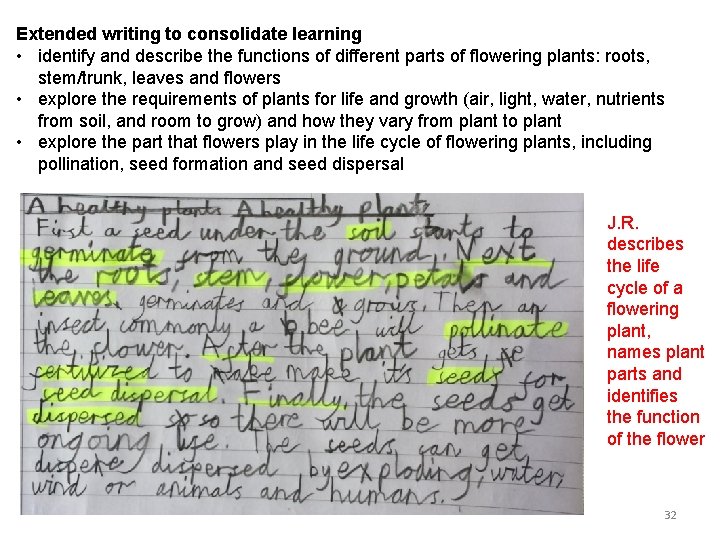 Extended writing to consolidate learning
• identify and describe the functions of different parts of flowering plants: roots,
stem/trunk, leaves and flowers
• explore the requirements of plants for life and growth (air, light, water, nutrients
from soil, and room to grow) and how they vary from plant to plant
• explore the part that flowers play in the life cycle of flowering plants, including
pollination, seed formation and seed dispersal
A healthy plants A healthy plants
First a seed under the soil starts to
germinate from the ground. Next
the roots, stem, flower, petals and
leaves germinates and grows. Then an
insect commonly a bee will pollinate
the flower. After the plant gets
fertilized to make make it's seeds for
seed dispersal. Finally, the seeds get
dispersed so so there will be more
ongoing life. The seeds can get
dispere dispersed by exploding, water,
wind or animals and humans.
J.R.
describes
the life
cycle of a
flowering
plant,
names plant
parts and
identifies
the function
of the flower
32